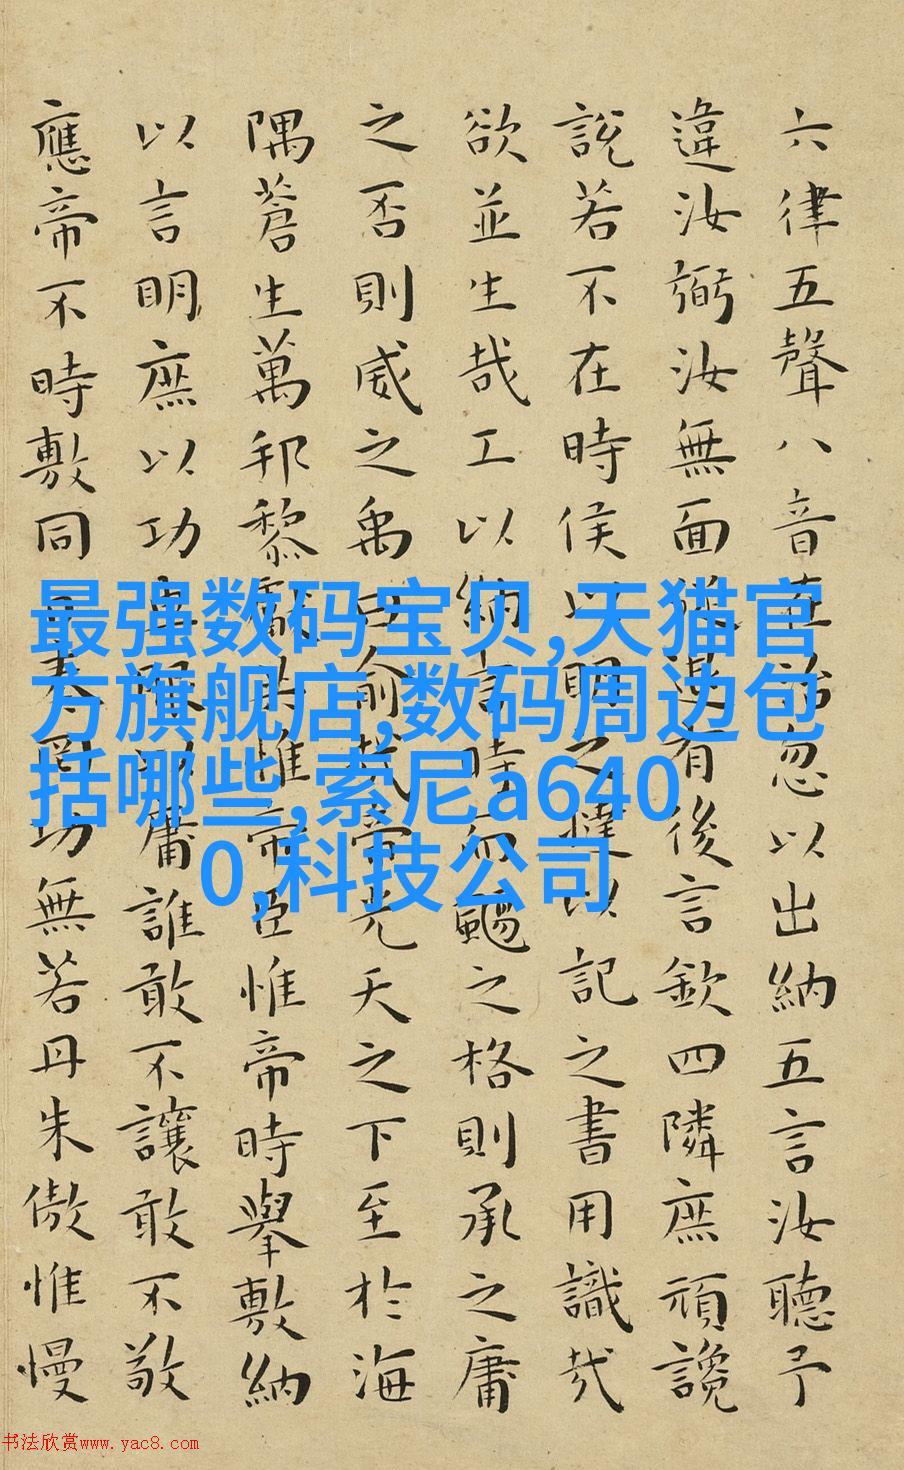 六律五聲八音在治忽以出納五言汝聽予
違汝弼汝無面從退有後言欽四隣庶頑讒
說若不在時侯以明之撻以記之書用識哉
欲並生哉工以納言時而颺之格則承之庸
之否則威之禹曰俞哉帝光天之下至於海
隅蒼生萬邦黎獻共惟帝臣惟帝時舉敷納
以言明庶以功車服以庸誰敢不讓敢不敬
應帝不時敷同日奏罔功無若丹朱傲惟慢
最强数码宝贝,天猫官
方旗舰店,数码周边包
括哪些,索尼a640
0,科技公司
书法欣赏www.yac8.com